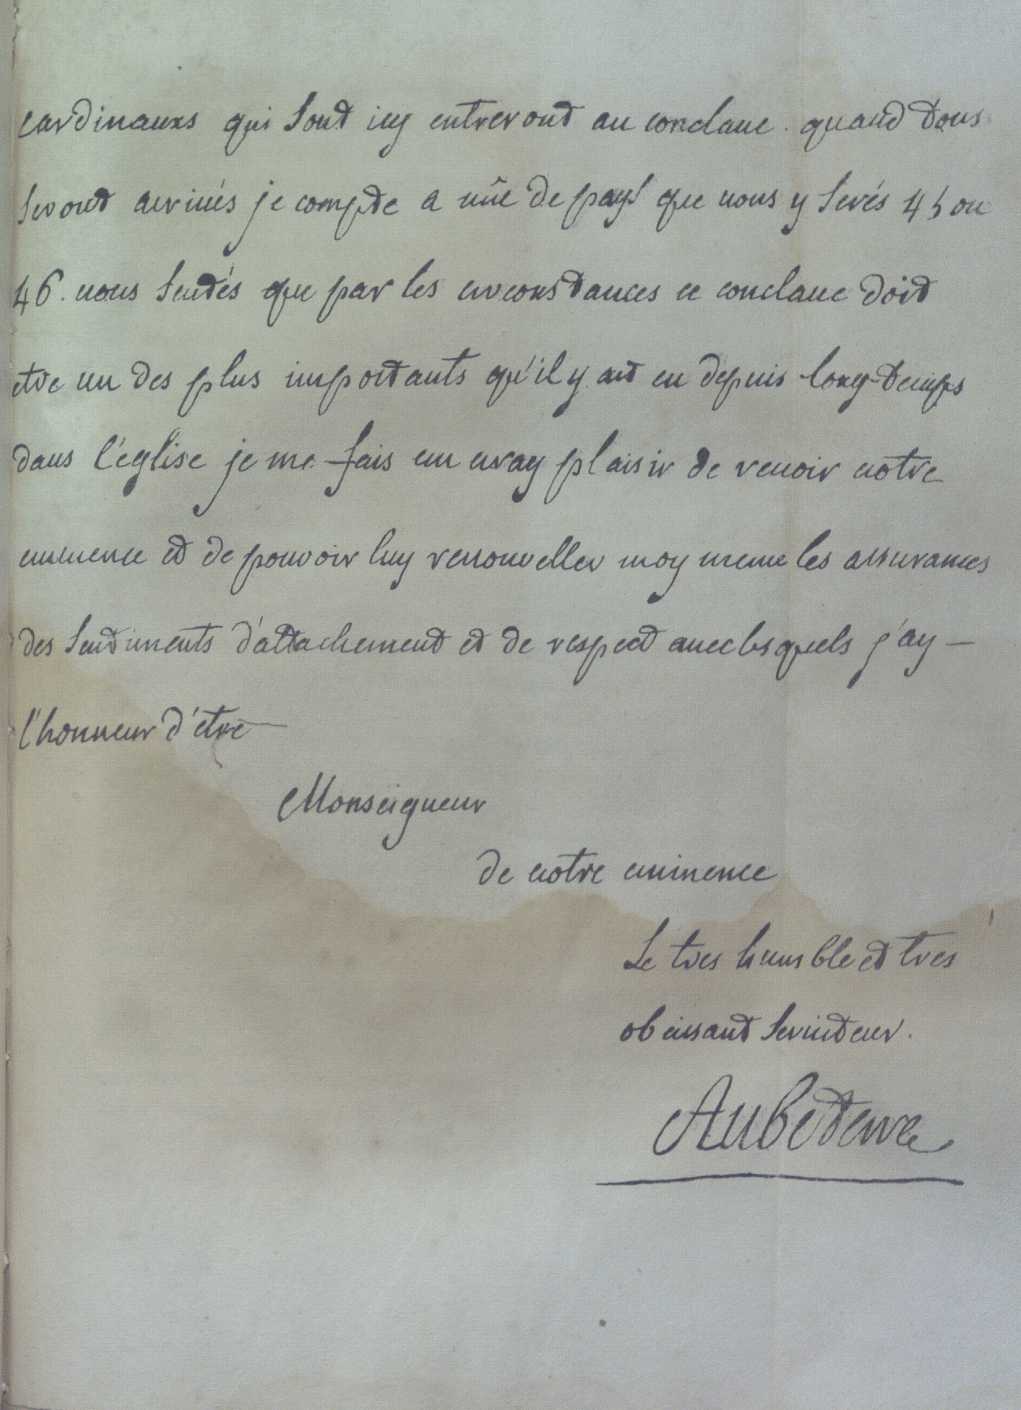 cardinaux qui sont icy entreront au conclave. quand tous
seront arrivés je compte a vüe de pays que vous y serés 45 ou
46. vous sentés que par les circonstances ce conclave doit
etre un des plus importants qu'il y ait eu depuis long-temps
dans l'église je me fais un vray plaisir de revoir votre
eminence et de pouvoir luy renouveller moy meme les assurances
des sentiments d'attachement et de respect avec lesquels j'ay —
l'honneur d'être
Monseigneur
de votre eminence
Le tres humble et tres
obeissant serviteur.
Aubeterre